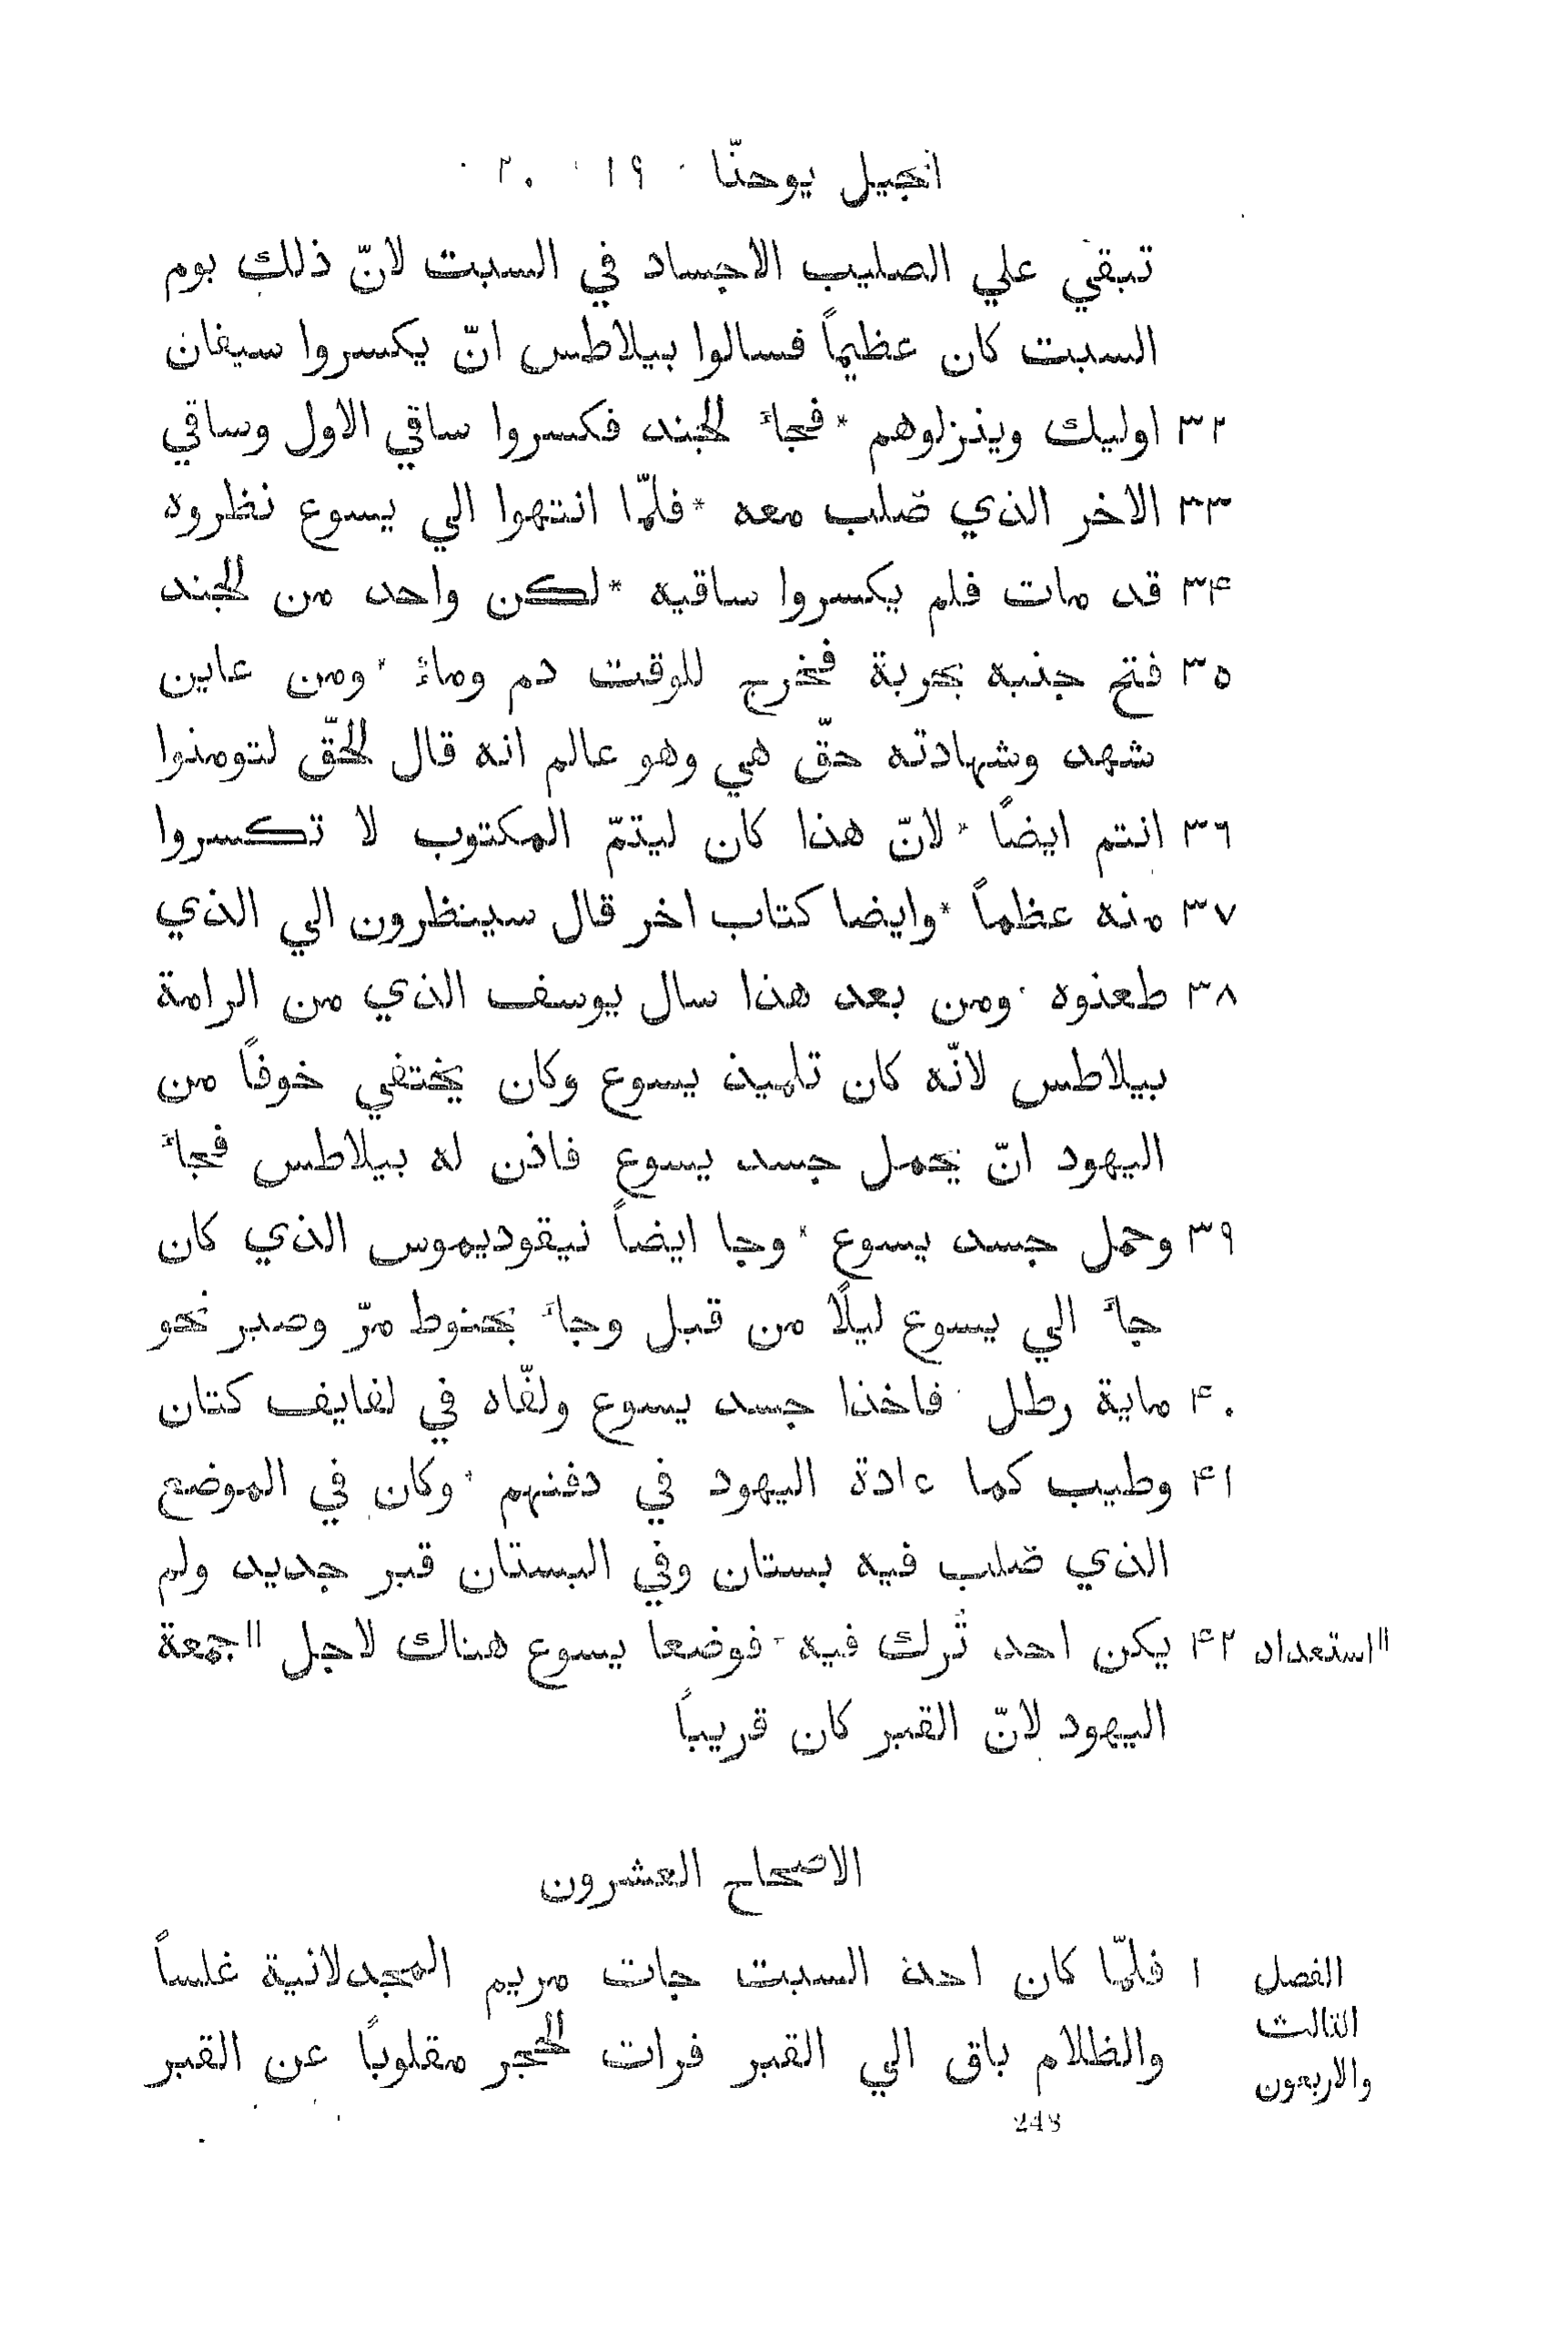 انجيل يوحنّا ١٩ ٢٠
تبقي علي الصليب الاجساد في السبت لانّ ذلك يوم
السبت كان عظيماً فسالوا بيلاطس انّ يكسروا سيفان
٣٢ اوليك وينزلوهم * فجاءَ الجند فكسروا ساقي الاول وساقي
٣٣ الاخر الذي صُلب معه * فلمّا انتهوا الي يسوع نظروه
٣۴ قد مات فلم يكسروا ساقيه * لكن واحد من الجند
٣٥ فتح جنبه بحربة فخرج للوقت دم وماءٌ * ومن عاين
شهد وشهادته حقّ هي وهو عالم انه قال الحقّ لتومنوا
٣٦ انتم ايضاً * لانّ هذا كان ليتمّ المكتوب لا تكسروا
٣٧ منه عظماً * وايضا كتاب اخر قال سينظرون الي الذي
٣٨ طعنوه * ومن بعد هذا سال يوسف الذي من الرامة
بيلاطس لانّه كان تلميذ يسوع وكان يختفي خوفاً من
اليهود انّ يحمل جسد يسوع فاذن له بيلاطس فجاءَ
٣٩ وحمل جسد يسوع * وجا ايضاً نيقوديموس الذي كان
جاءَ الي يسوع ليلًا من قبل وجاءَ بحنوط مرّ وصبر نحو
۴٠ ماية رطل * فاخذا جسد يسوع ولفّاه في لفايف كتان
۴١ وطيب كما عادة اليهود في دفنهم * وكان في الموضع
الذي صُلب فيه بستان وفي البستان قبر جديد ولم
۴٢ يكن احد تُرك فيه * فوضعا يسوع هناك لاجل || جمعة
|| استعداد
اليهود لانّ القبر كان قريباً
الاصحاح العشرون
١ فلمّا كان احد السبت جات مريم المجدلانية غلساً
والظلام باق الي القبر فرات الحجر مقلوباً عن القبر
الفصل
الثالث
والاربعون
248